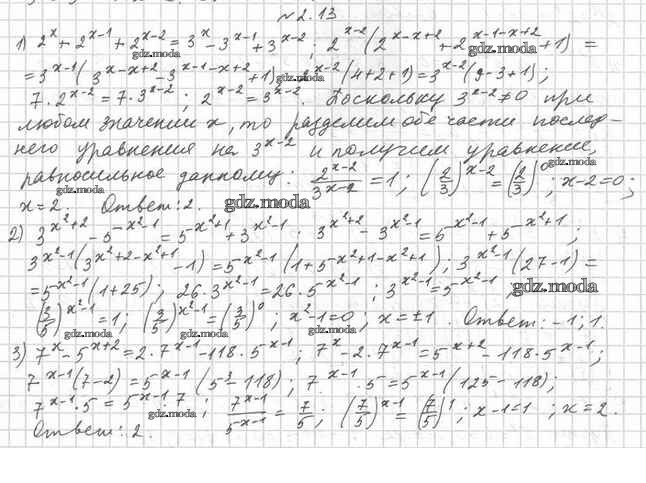 №2.13
1) 2^x + 2^{x-1} + 2^{x-2} = 3^x - 3^{x-1} + 3^{x-2} ; 2^{x-2}(2^{x-x+2} + 2^{x-1-x+2} + 1) =
= 3^{x-1}(3^{x-x+2} - 3^{x-1-x+2} + 1) ; 2^{x-2}(4+2+1) = 3^{x-2}(9-3+1) ;
7·2^{x-2} = 7·3^{x-2} ; 2^{x-2} = 3^{x-2} . Поскольку 3^{x-2} ≠ 0 при
любом значении x, то разделим обе части послед-
него уравнения на 3^{x-2} и получим уравнение,
равносильное данному: \frac{2^{x-2}}{3^{x-2}} = 1 ; (\frac{2}{3})^{x-2} = (\frac{2}{3})^0 ; x-2=0 ;
x = 2. Ответ: 2.
2) 3^{x^2+2} - 5^{x^2-1} = 5^{x^2+1} + 3^{x^2-1} . 3^{x^2+2} - 3^{x^2-1} = 5^{x^2-1} + 5^{x^2+1} ;
3^{x^2-1}(3^{x^2+2-x^2+1} - 1) = 5^{x^2-1}(1 + 5^{x^2+1-x^2+1}) ; 3^{x^2-1}(27-1) =
= 5^{x^2-1}(1+25) ; 26·3^{x^2-1} = 26·5^{x^2-1} ; 3^{x^2-1} = 5^{x^2-1} ;
(\frac{3}{5})^{x^2-1} = 1 ; (\frac{3}{5})^{x^2-1} = (\frac{3}{5})^0 ; x^2-1=0 ; x = ±1 . Ответ: -1; 1.
3) 7^x - 5^{x+2} = 2·7^{x-1} - 118·5^{x-1} ; 7^x - 2·7^{x-1} = 5^{x+2} - 118·5^{x-1} ;
7^{x-1}(7-2) = 5^{x-1}(5^3 - 118) ; 7^{x-1}·5 = 5^{x-1}(125-118) ;
7^{x-1}·5 = 5^{x-1}·7 ; \frac{7^{x-1}}{5^{x-1}} = \frac{7}{5} ; (\frac{7}{5})^{x-1} = (\frac{7}{5})^1 ; x-1=1 ; x = 2.
Ответ: 2.
gdz.moda
gdz.moda
gdz.moda
gdz.moda
gdz.moda
gdz.moda
gdz.moda
gdz.moda
gdz.moda
gdz.moda